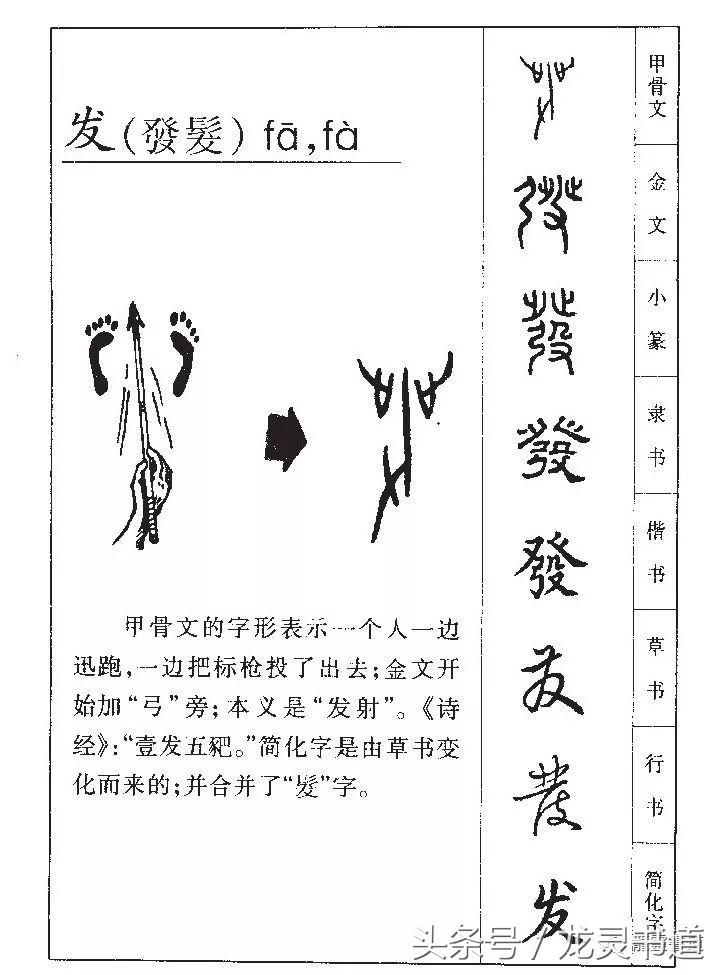 发(發髮) fā,fà
甲骨文的字形表示一个人一边
迅跑,一边把标枪投了出去;金文开
始加“弓”旁;本义是“发射”。《诗
经》:“壹发五豝。”简化字是由草书变
化而来的;并合并了“髮”字。
甲骨文
金文
小篆
隶书
楷书
草书
行书
简化字
發
發
发
头条号/龙灵书道